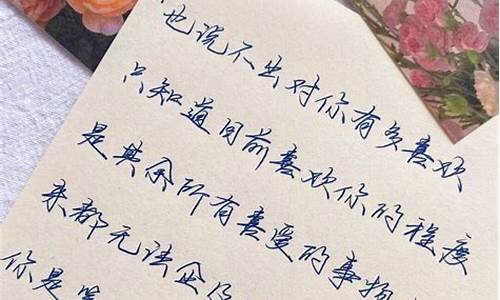 也说不出对你有多喜欢
只知道目前喜欢你的程度
是其余所有喜爱的事物
来都无法企及
你是第